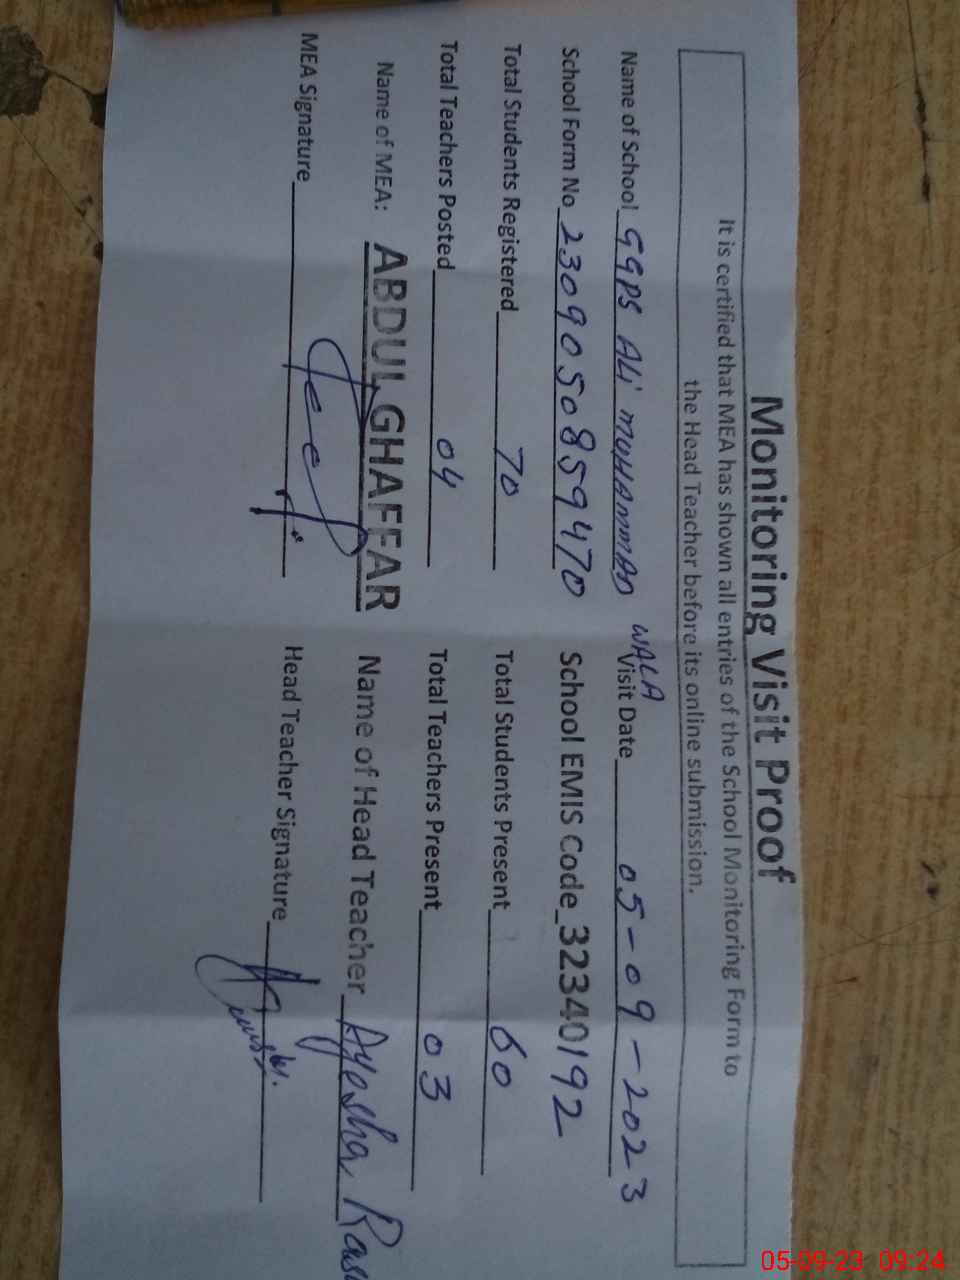 Monitoring Visit Proof
It is certified that MEA has shown all entries of the School Monitoring Form to
the Head Teacher before its online submission.
Name of School GGPS ALi MUHAMMAD WALA Visit Date 05-09-2023
School Form No 2309050859470 School EMIS Code 32340192
Total Students Registered 70 Total Students Present 60
Total Teachers Posted 04 Total Teachers Present 03
Name of MEA: ABDUL GHAFFAR Name of Head Teacher Ayesha
MEA Signature Head Teacher Signature
05-09-23 09:24